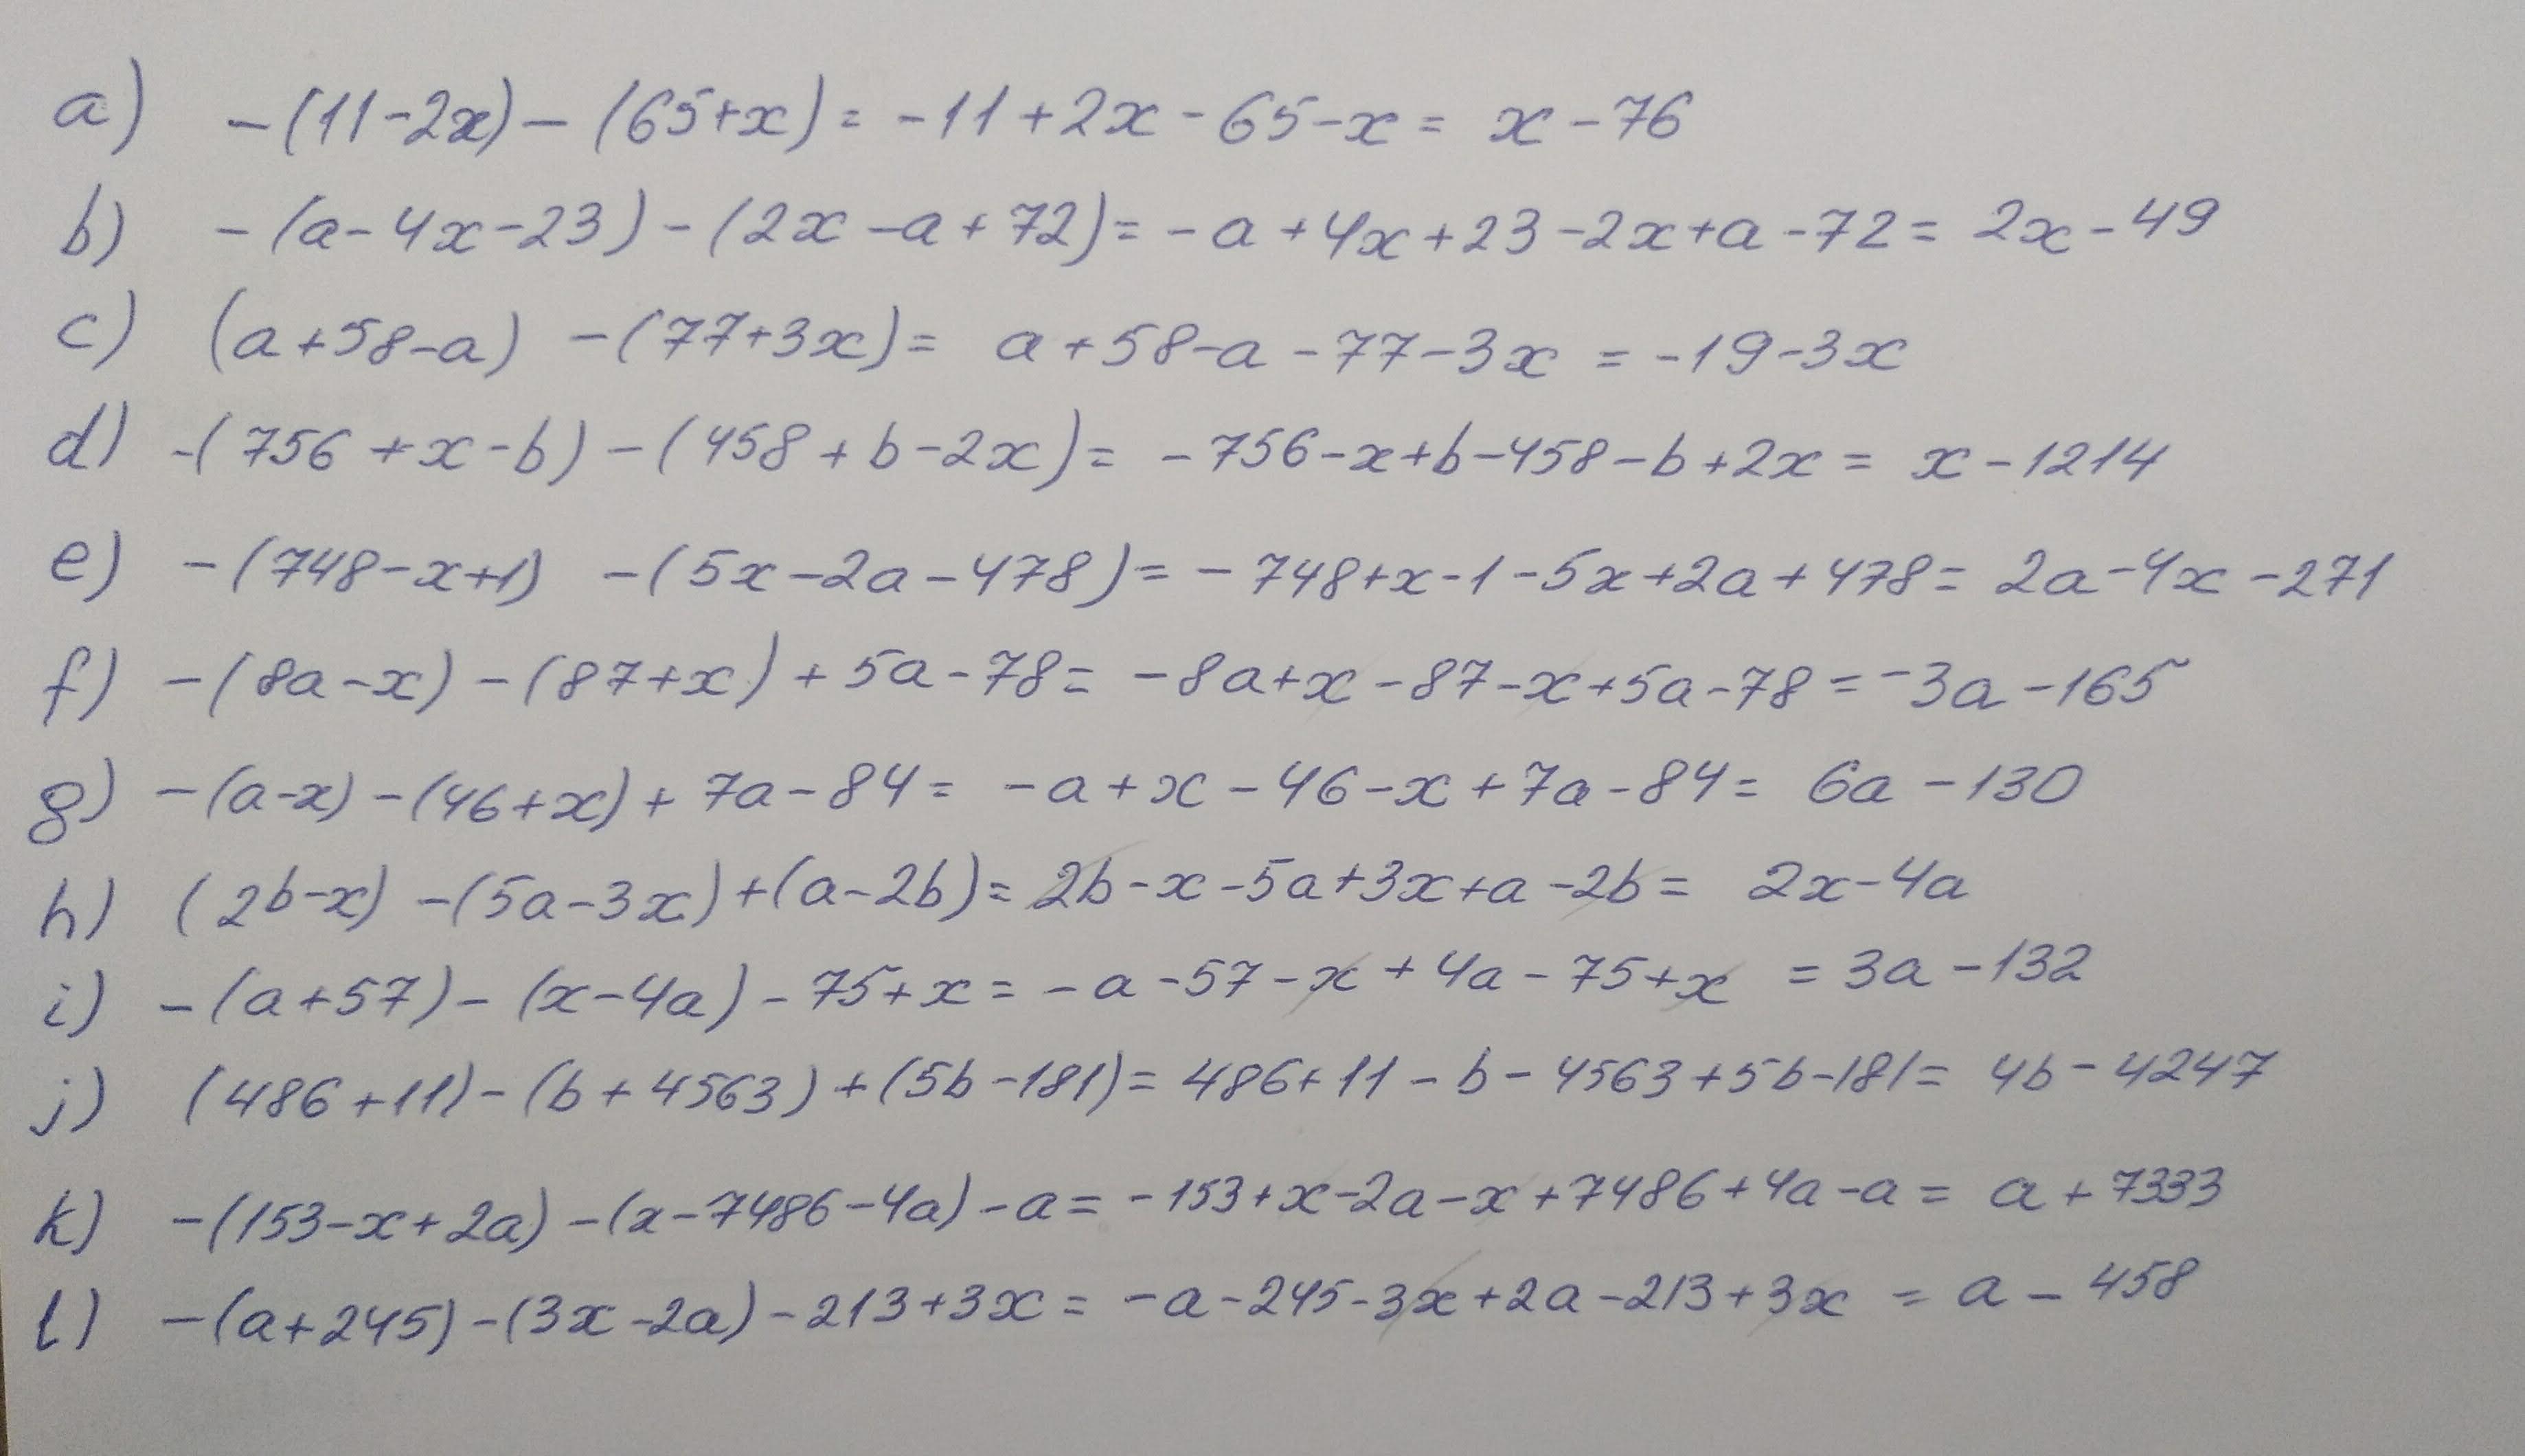 a) -(11-2x)-(65+x)= -11+2x-65-x= x-76
b) -(a-4x-23)-(2x-a+72)= -a+4x+23-2x+a-72= 2x-49
c) (a+58-a) -(77+3x)= a+58-a-77-3x = -19-3x
d) -(756+x-b)-(458+b-2x)= -756-x+b-458-b+2x= x-1214
e) -(748-x+1) -(5x-2a-478)= -748+x-1-5x+2a+478= 2a-4x-271
f) -(8a-x)-(87+x)+5a-78= -8a+x-87-x+5a-78= -3a-165
g) -(a-x)-(46+x)+7a-84= -a+x-46-x+7a-84= 6a-130
h) (2b-x)-(5a-3x)+(a-2b)= 2b-x-5a+3x+a-2b= 2x-4a
i) -(a+57)-(x-4a)-75+x= -a-57-x+4a-75+x = 3a-132
j) (486+11)-(b+4563)+(5b-181)= 486+11-b-4563+5b-181= 4b-4247
k) -(153-x+2a)-(x-7486-4a)-a= -153+x-2a-x+7486+4a-a= a+7333
l) -(a+245)-(3x-2a)-213+3x= -a-245-3x+2a-213+3x = a-458